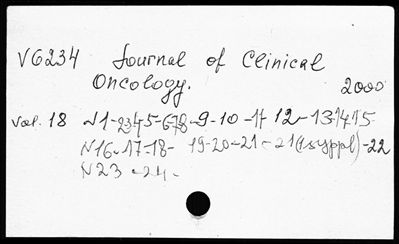 V6234 Journal of Clinical
Oncology.
2000
Vol. 18 N1-2345-678-9-10-11 12-131415
N16-17-18- 19-20-21-21(suppl)-22
N23-24-